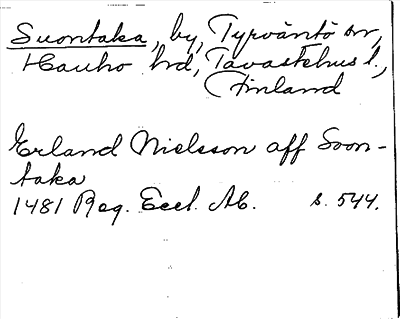 Suontaka, by, Tyrväntö sn,
Hauho hd, Tavastehus l.,
Finland
Erland Nielsson aff Soon-
taka
1481 Reg. Eccl. Ab. s. 544.